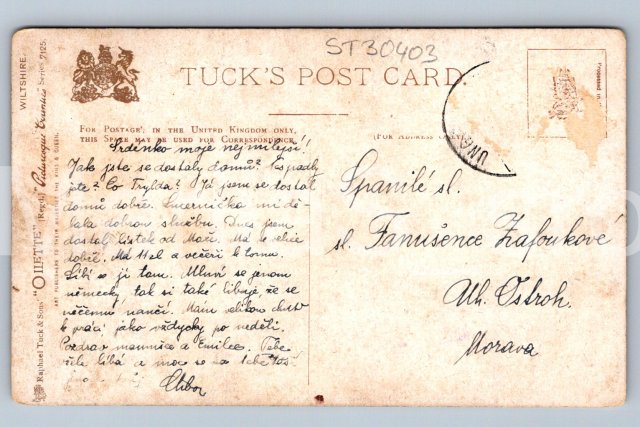 ST30403
TUCK'S POST CARD.
FOR POSTAGE, IN THE UNITED KINGDOM ONLY,
THIS SPACE MAY BE USED FOR CORRESPONDENCE
(FOR ADDRESS ONLY)
WILTSHIRE.
Raphael Tuck & Sons' "OILETTE" (Regd.) "Picturesque Counties" Series 7125.
ART PUBLISHERS TO THEIR MAJESTIES THE KING & QUEEN.
moje nejmilejší!
Jak jste se dostaly domů?
jste? Co Frylda? Já jsem se dostal
domů dobře.
dobrou službu. Dnes jsem
dostal lístek od Má se velice
dobře. Má a večeři k tomu.
Líbí se jí tam. Mluví se jenom
německy, tak si také libuje, že se
něčemu naučí. Mám velikou chuť
k práci jako vždycky po neděli.
Pozdrav maminku a Emilce. Tebe
líbá a moc se na tebe těš
Ctibor
Spanilé sl.
sl. Fanušence Zafoukové
Uh. Ostroh.
Morava